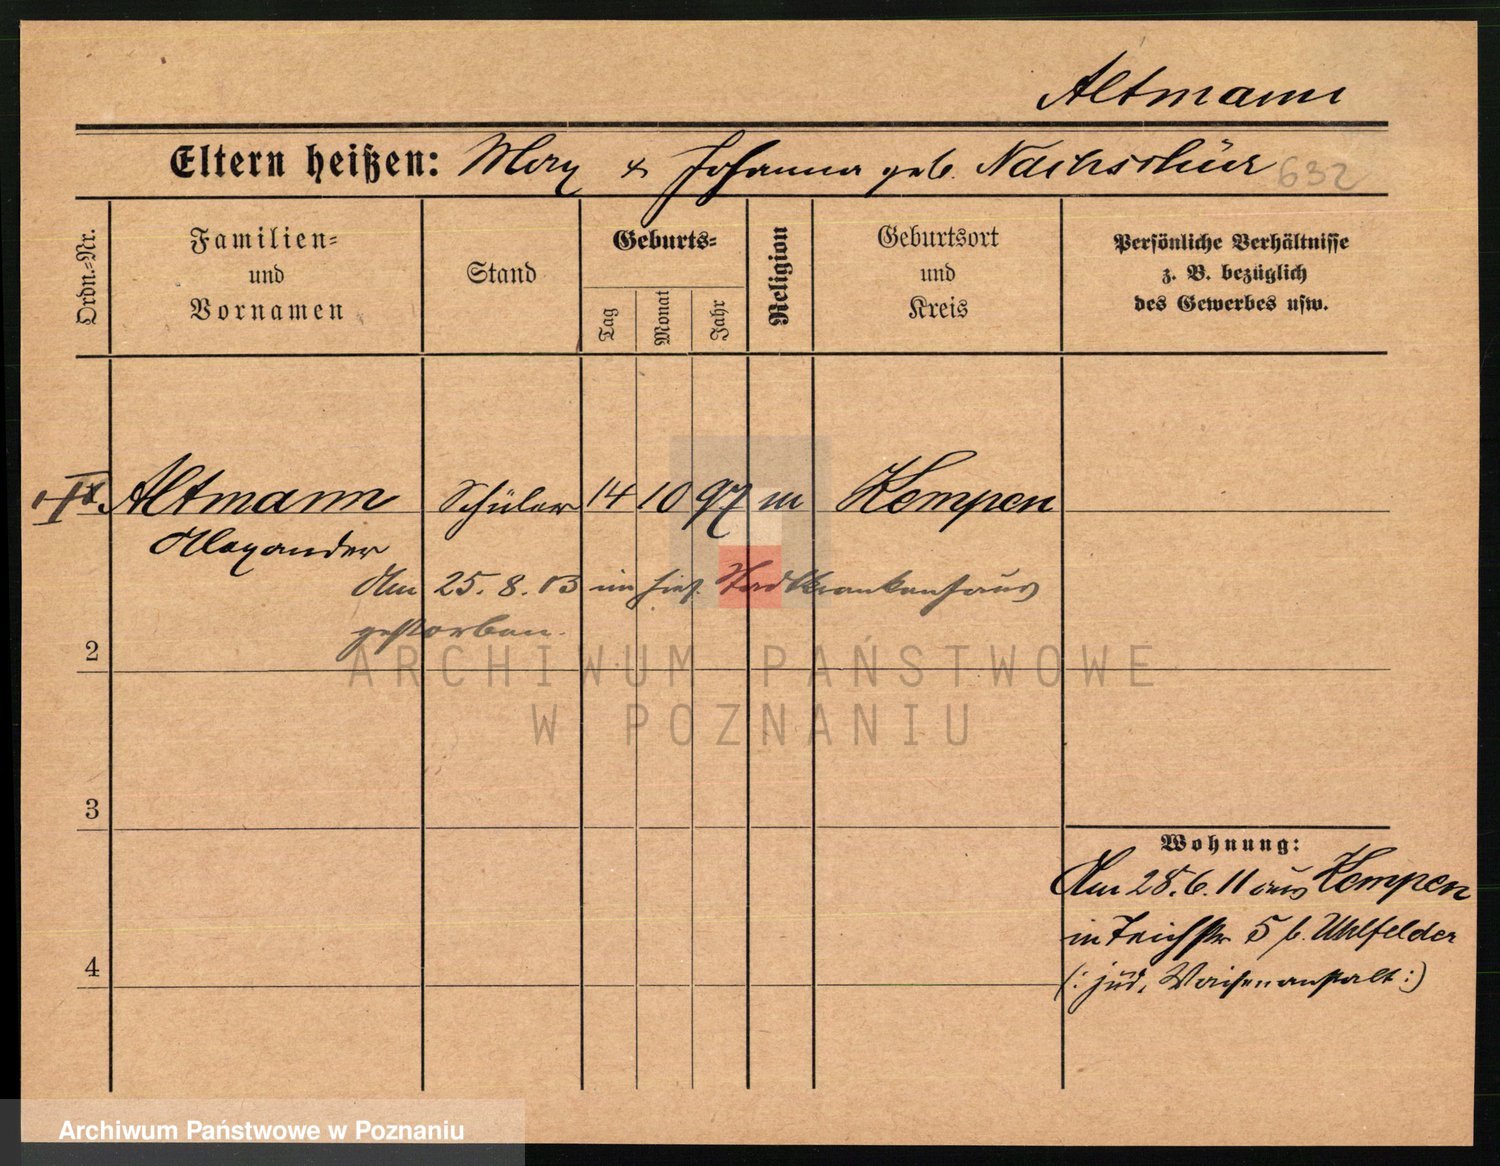 Altmann
Eltern heißen: Mory & Johanna geb. Nachschür 632
Ordn.-Nr.
Familien-
und
Vornamen
Stand
Geburts-
Tag
Monat
Jahr
Religion
Geburtsort
und
Kreis
Persönliche Verhältnisse
z. B. bezüglich
des Gewerbes usw.
Altmann Schüler 14 10 97 m Kempen
Alexander
Am 25. 8. 13 im hies. Stadtkrankenhaus
gestorben.
2
3
4
Wohnung:
Am 28. 6. 11 aus Kempen
in Teichstr 5 b. Uhlfelder
(: jüd. Waisenanstalt :)
ARCHIWUM PAŃSTWOWE
W POZNANIU
Archiwum Państwowe w Poznaniu